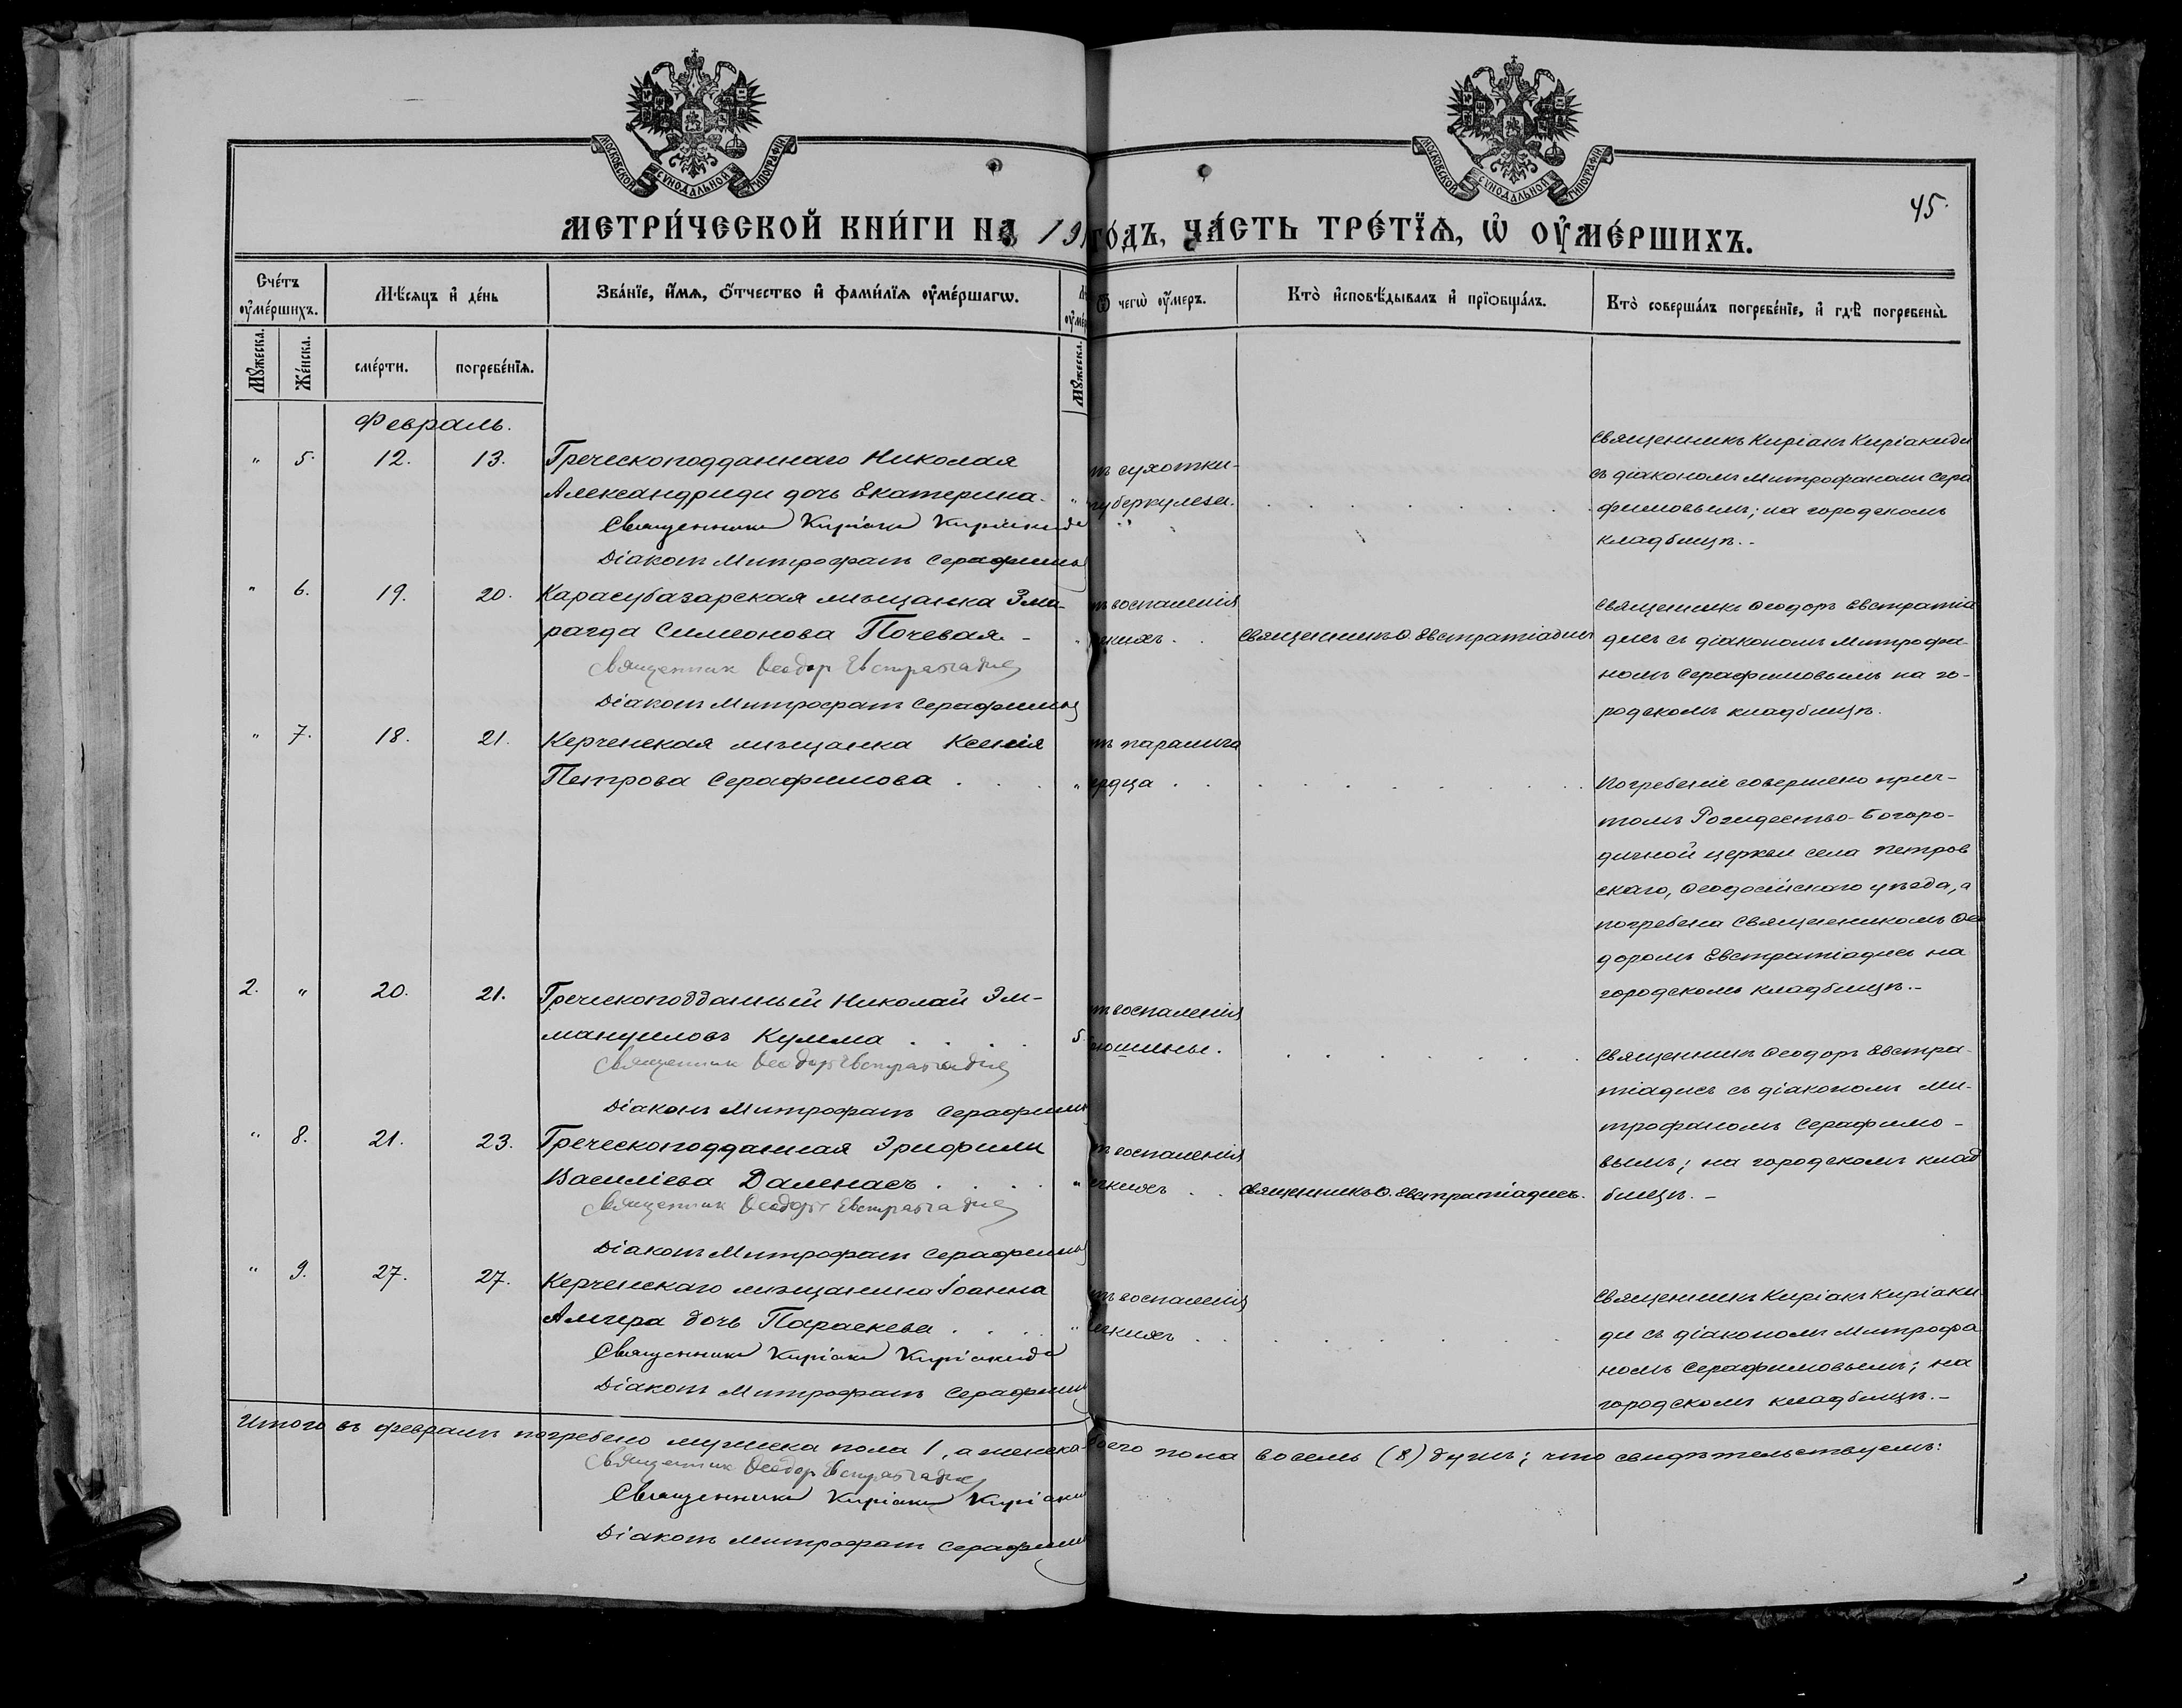 МОСКОВСКОЙ СѴНОДАЛЬНОЙ ТИПОГРАФІИ
МОСКОВСКОЙ СѴНОДАЛЬНОЙ ТИПОГРАФІИ
45.
МЕТРИ́ЧЕСКОЙ КНИ́ГИ НА 19
ГО́ДЪ, ЧА́СТЬ ТРЕ́ТЇѦ, Ѡ҆ ОУ҆МЕ́РШИХЪ.
Сче́тъ оу҆ме́ршихъ.
Мѣ́сяцъ и҆ де́нь
Зва́нїе, и҆́мя, ѻ҆́тчество и҆ фами́лїя оу҆ме́ршагѡ.
Ѿ чегѡ̀ оу҆́меръ.
Кто̀ и҆сповѣ́дывалъ и҆ прїѻбща́лъ.
Кто̀ соверша́лъ погребе́нїе, и҆ гдѣ̀ погребены̀.
Мꙋ́жеска.
Же́нска.
сме́рти.
погребе́нїя.
Мꙋ́жеска.
Февраль.
" 5. 12. 13. Греческоподданнаго Николая
Александриди дочь Екатерина.
Священникъ Киріакъ Киріакиди
Діаконъ Митрофанъ Серафимов
тъ сухотки-
туберкулеза.
Священникъ Киріакъ Киріакиди
съ діакономъ Митрофаномъ Сера
фимовымъ; на городскомъ
кладбищѣ.-
" 6. 19. 20. Карасубазарская мѣщанка Зма-
рагда Симеонова Почевая. -
Священник Ѳеодор Евстратіадис
Діаконъ Митрофанъ Серафимов
тъ воспаленія
легкихъ. . Священникъ Ѳ. Евстратіадисъ
Священникъ Ѳеодоръ Евстратіа
дисъ съ діакономъ Митрофа-
номъ Серафимовымъ на го-
родскомъ кладбищѣ.
" 7. 18. 21. Керченская мѣщанка Ксенія
Петрова Серафимова . . .
тъ паралича
ердца . .
Погребеніе совершено прич-
томъ Рождество-Богоро-
дичной церкви села Петров
скаго, Ѳеодосійскаго уѣзда, а
погребена Священникомъ Ѳео
доромъ Евстратіадисъ на
городскомъ кладбищѣ.-
2. " 20. 21. Греческоподданный Николай Эм-
мануиловъ Кулима . . . . 5
Священник Ѳеодоръ Евстратіадис
Діаконъ Митрофанъ Серафимов
тъ воспаленія
рюшины.
Священникъ Ѳеодоръ Евстра-
тіадисъ съ діакономъ Ми-
трофаномъ Серафимо-
вымъ; на городскомъ клад
бищѣ. -
" 8. 21. 23. Греческоподданная Эриофили
Василіева Даленасъ . . . . "
Священник Ѳеодоръ Евстратіадис
Діаконъ Митрофанъ Серафимов
тъ воспаленія
егкихъ . . Священникъ Ѳ. Евстратіадисъ.
" 9. 27. 27. Керченскаго мѣщанина Іоанна
дочь Параскева . . . . "
Священникъ Киріакъ Киріакиди
Діаконъ Митрофанъ Серафимов
тъ воспаленія
егкихъ . .
Священникъ Киріакъ Киріаки
ди съ діакономъ Митрофа
номъ Серафимовымъ; на
городскомъ кладбищѣ.-
Итого въ февралѣ погребено мужеска пола 1, а женска-
боего пола восемь (8) душъ; что свидѣтельствуемъ:
Священник Ѳеодор Евстратіадис
Священникъ Киріакъ Киріаки
Діаконъ Митрофанъ Серафимов